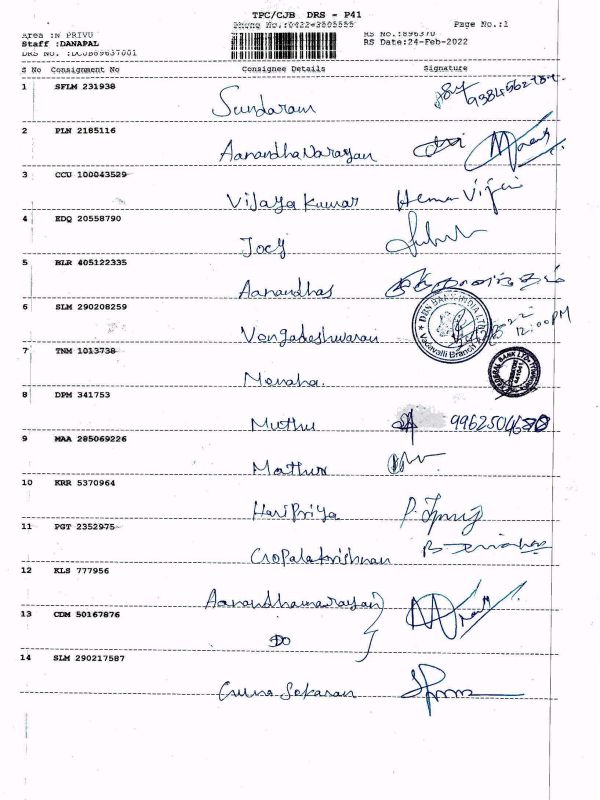 TPC/CJB DRS - P41
Phone No.:0422-3505555 Page No.:1
Area :N PRIVU RS No.:896370
Staff :DANAPAL RS Date:24-Feb-2022
DRS No. :DCJB89637001
S No Consignment No Consignee Details Signature
1 SFLM 231938 Sundaram
2 PLN 2185116 AanandhaNarayan
3 CCU 100043529 Vijaya Kumar Hema Vijai
4 EDQ 20558790 Joey
5 BLR 405122335 Aanandhas
6 SLM 290208259 Vengadeshwaran 12:00PM
DBS BANK INDIA LTD
Vadavalli Branch
7 TNM 1013738 Menaha.
8 DPM 341753 Muthu
9 MAA 285069226 Mathur
10 KRR 5370964 HariPriya
11 PGT 2352975 Gopalakrishnan
12 KLS 777956 Aanandhanarayan
13 CDM 50167876 DO
14 SLM 290217587 Guna Sekaran